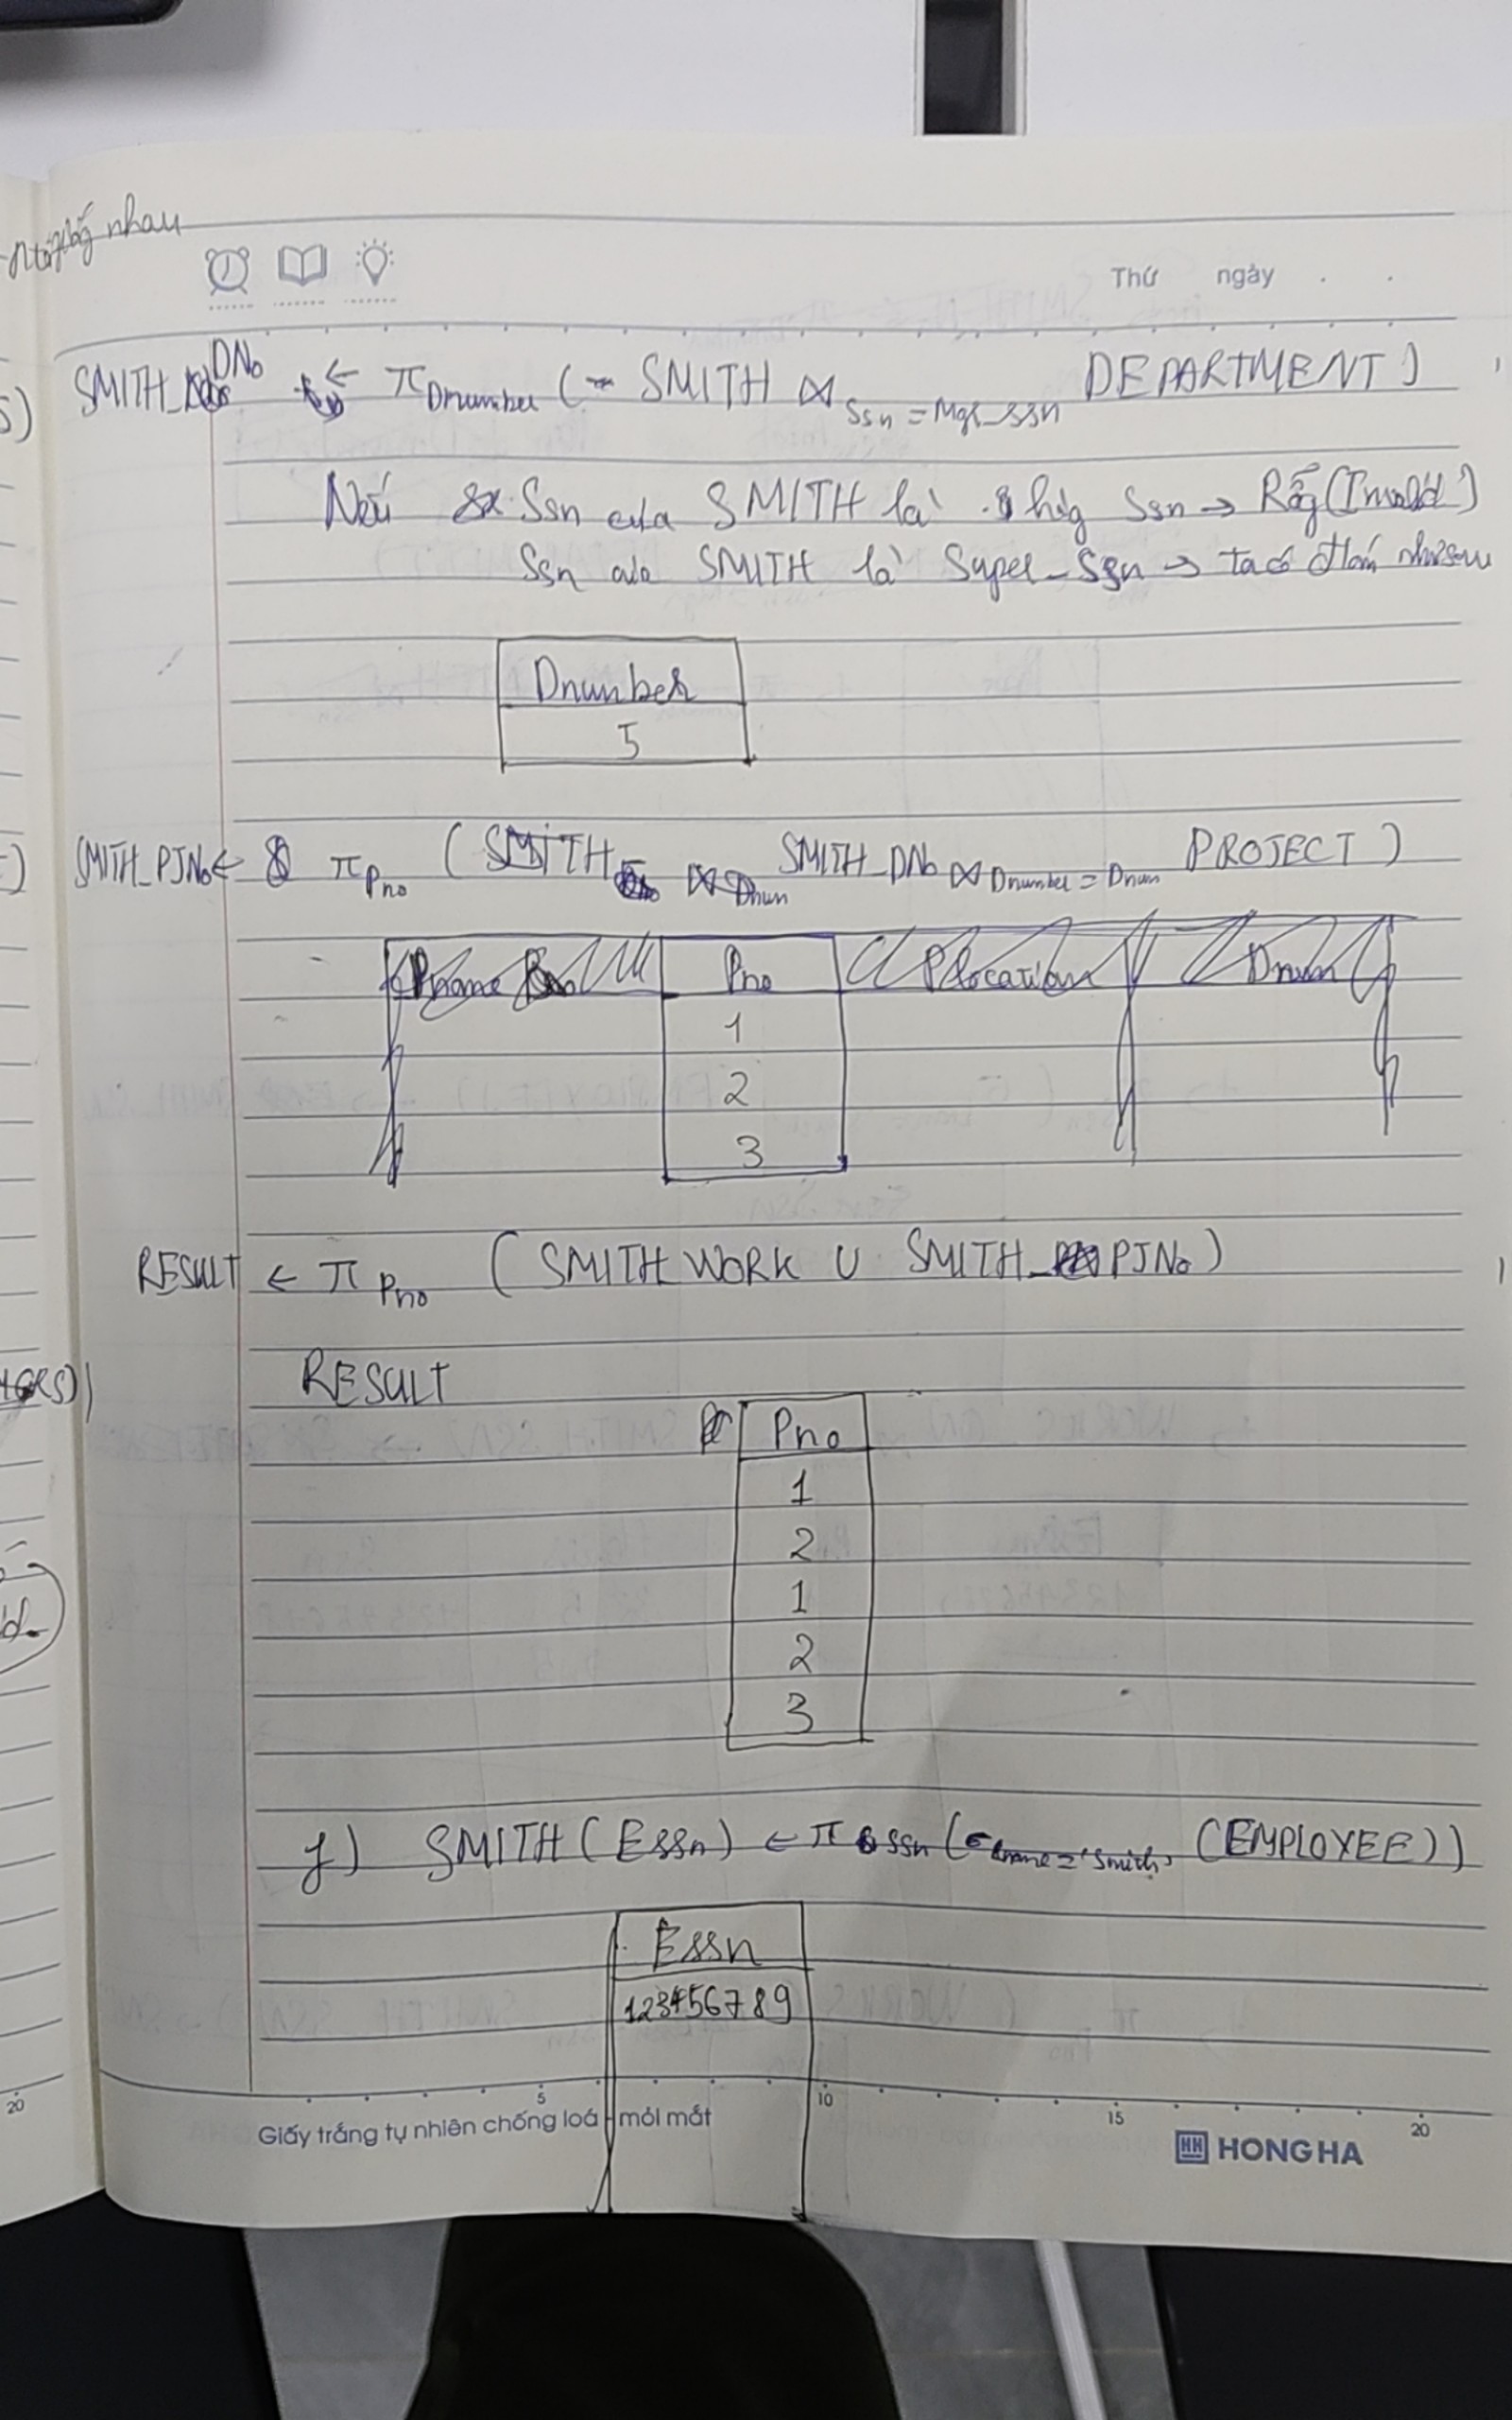 nhau
Thứ ngày . .
SMITH_DNo ← π Dnumber ( SMITH ⋈ Ssn = Mgr_ssn DEPARTMENT )
5)
Nếu Ssn của SMITH là Ssn → Rỗng (Invalid)
Ssn của SMITH là Super_Ssn → ta có như sau
Dnumber
5
SMITH_PJNo ← π Pno ( SMITH_DNo ⋈ Dnumber = Dnum PROJECT )
Pname Pno Plocation Dnum
1
2
3
RESULT ← π Pno ( SMITH WORK ∪ SMITH_PJNo )
RESULT
Pno
1
2
1
2
3
f) SMITH (Essn) ← π ssn (σ Lname = 'Smith' (EMPLOYEE))
Essn
123456789
20 5 10 15 20
Giấy trắng tự nhiên chống loá mỏi mắt
HH HONG HA